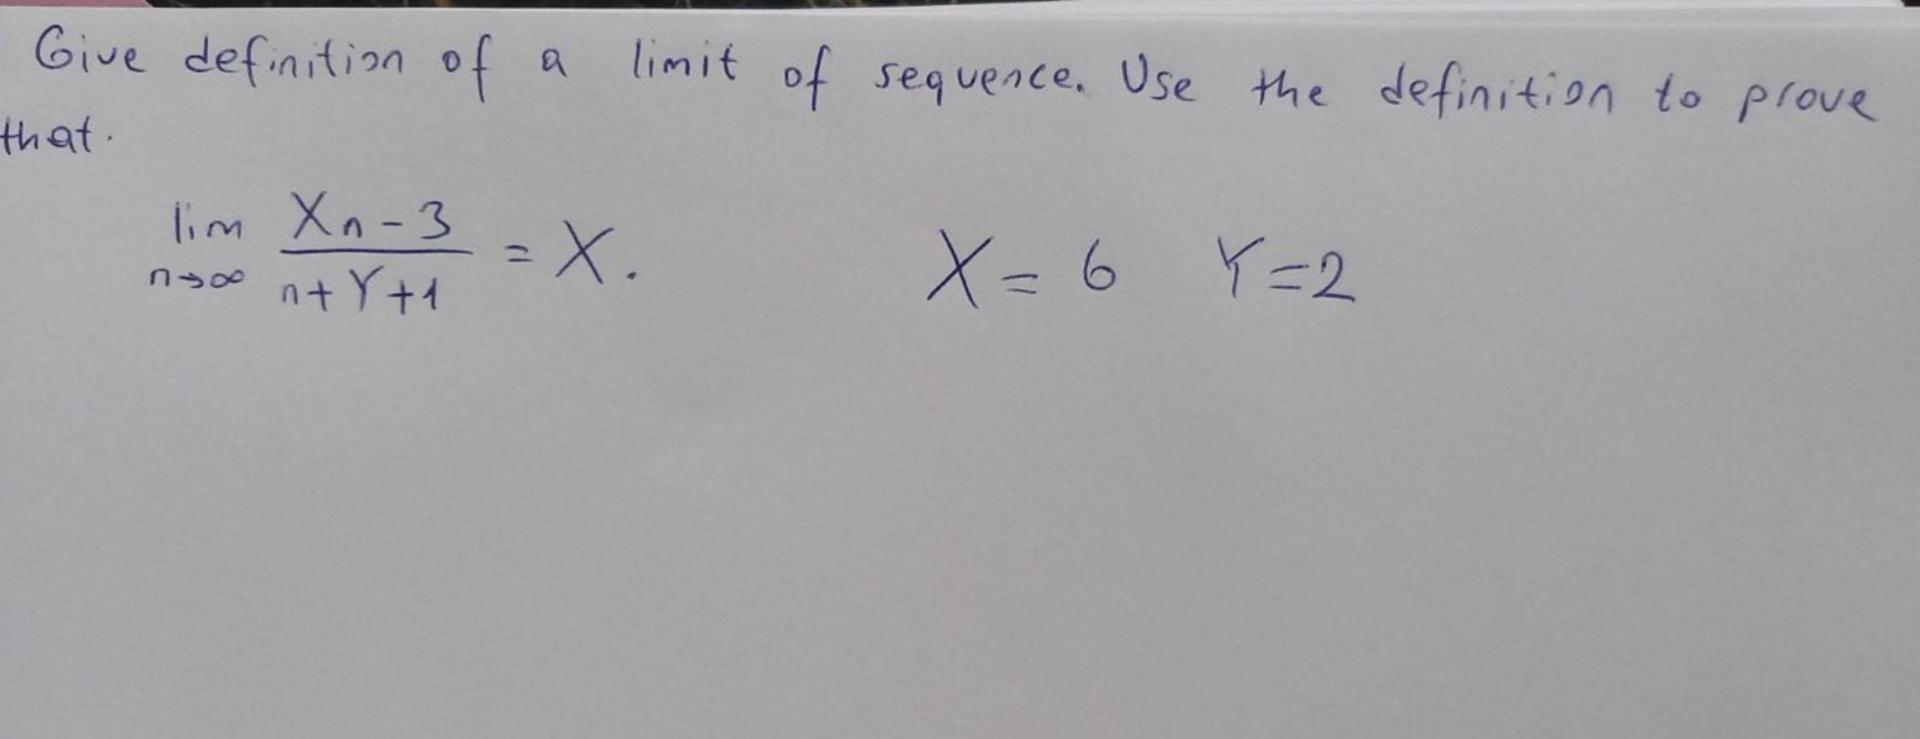 Give definition of a limit of sequence. Use the definition to prove
that.
lim n→∞ (Xn-3)/(n+Y+1) = X. X=6 Y=2